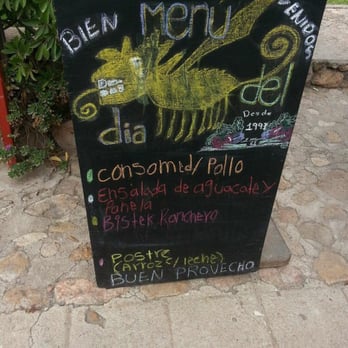 BIEN
VENIDOS
Menú
del
dia
Desde
1997
Consomed/Pollo
Ensalada de aguacate y
Panela
Bistek Ranchero
Postre
(Arroz c/leche)
BUEN PROVECHO